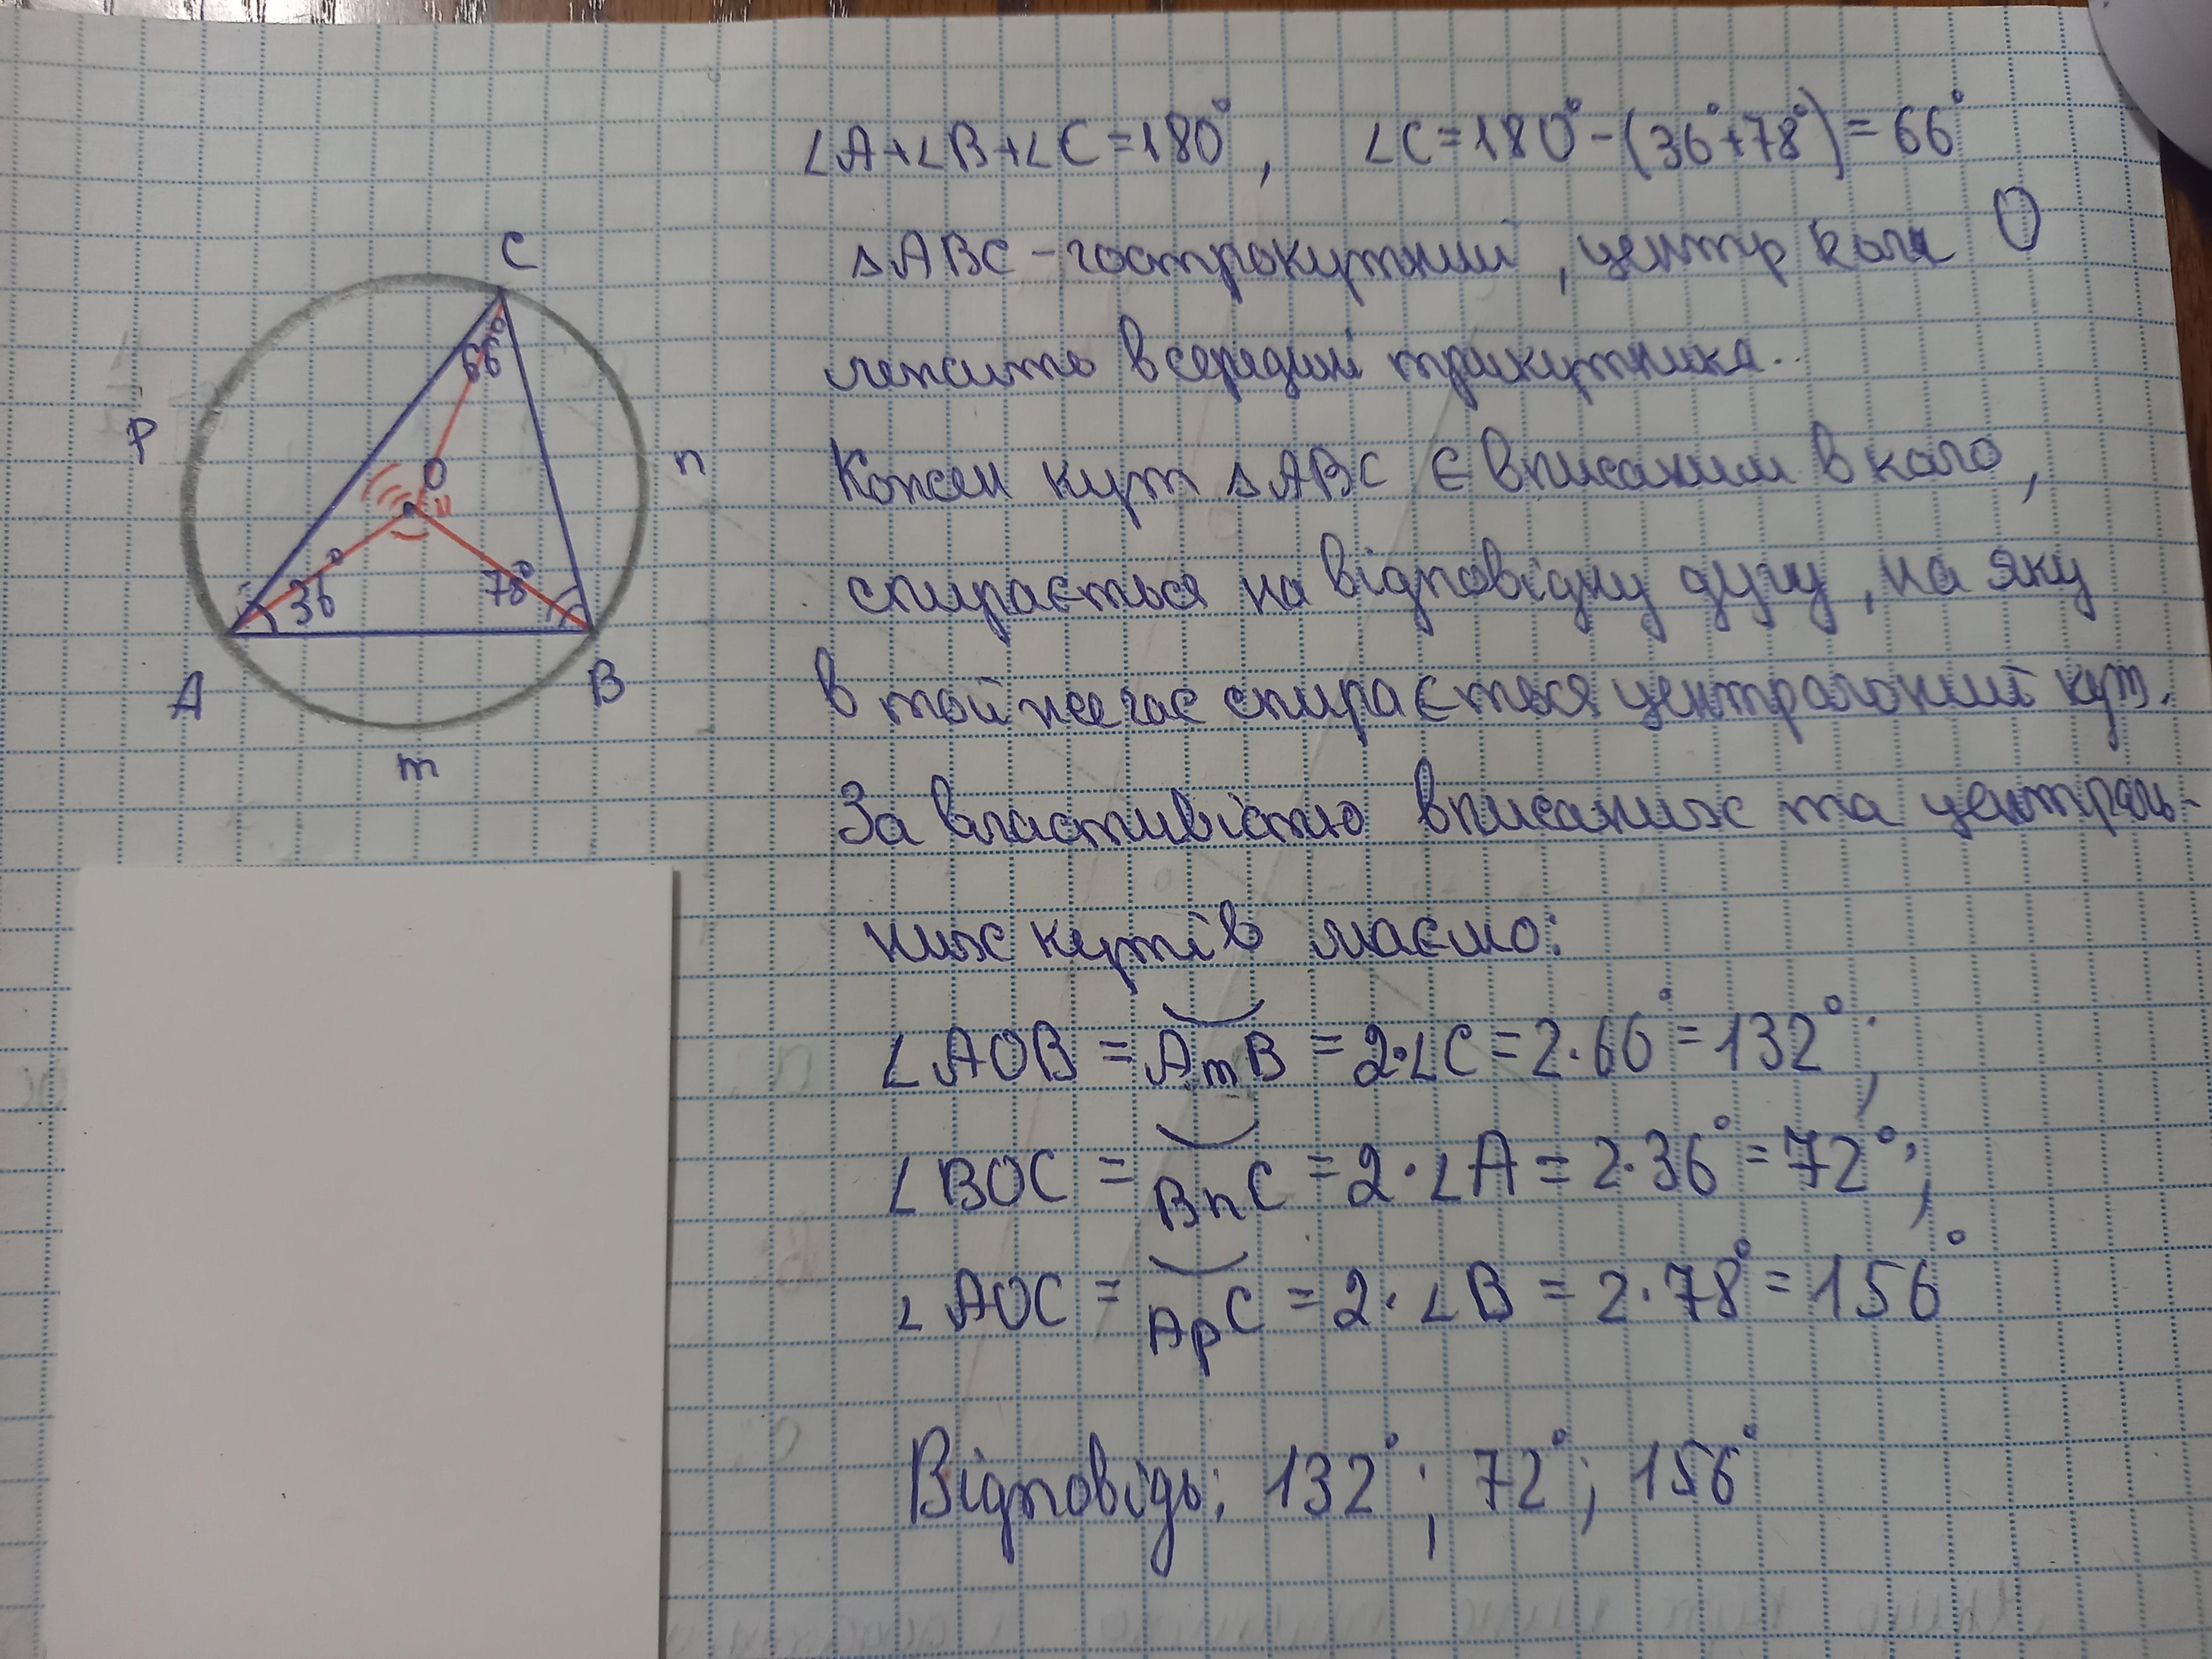 ∠A+∠B+∠C=180°, ∠C=180°-(36°+78°)=66°
△ABC - гострокутний, центр кола О
лежить всередині трикутника.
Кожен кут △ABC є вписаним в коло,
спирається на відповідну дугу, на яку
в той же час спирається центральний кут.
За властивістю вписаних та централь-
них кутів маємо:
∠AOB = AmB = 2·∠C = 2·66° = 132°;
∠BOC = BnC = 2·∠A = 2·36° = 72°;
∠AOC = ApC = 2·∠B = 2·78° = 156°
Відповідь: 132°; 72°; 156°
C
66°
P
O
n
36°
78°
A
B
m